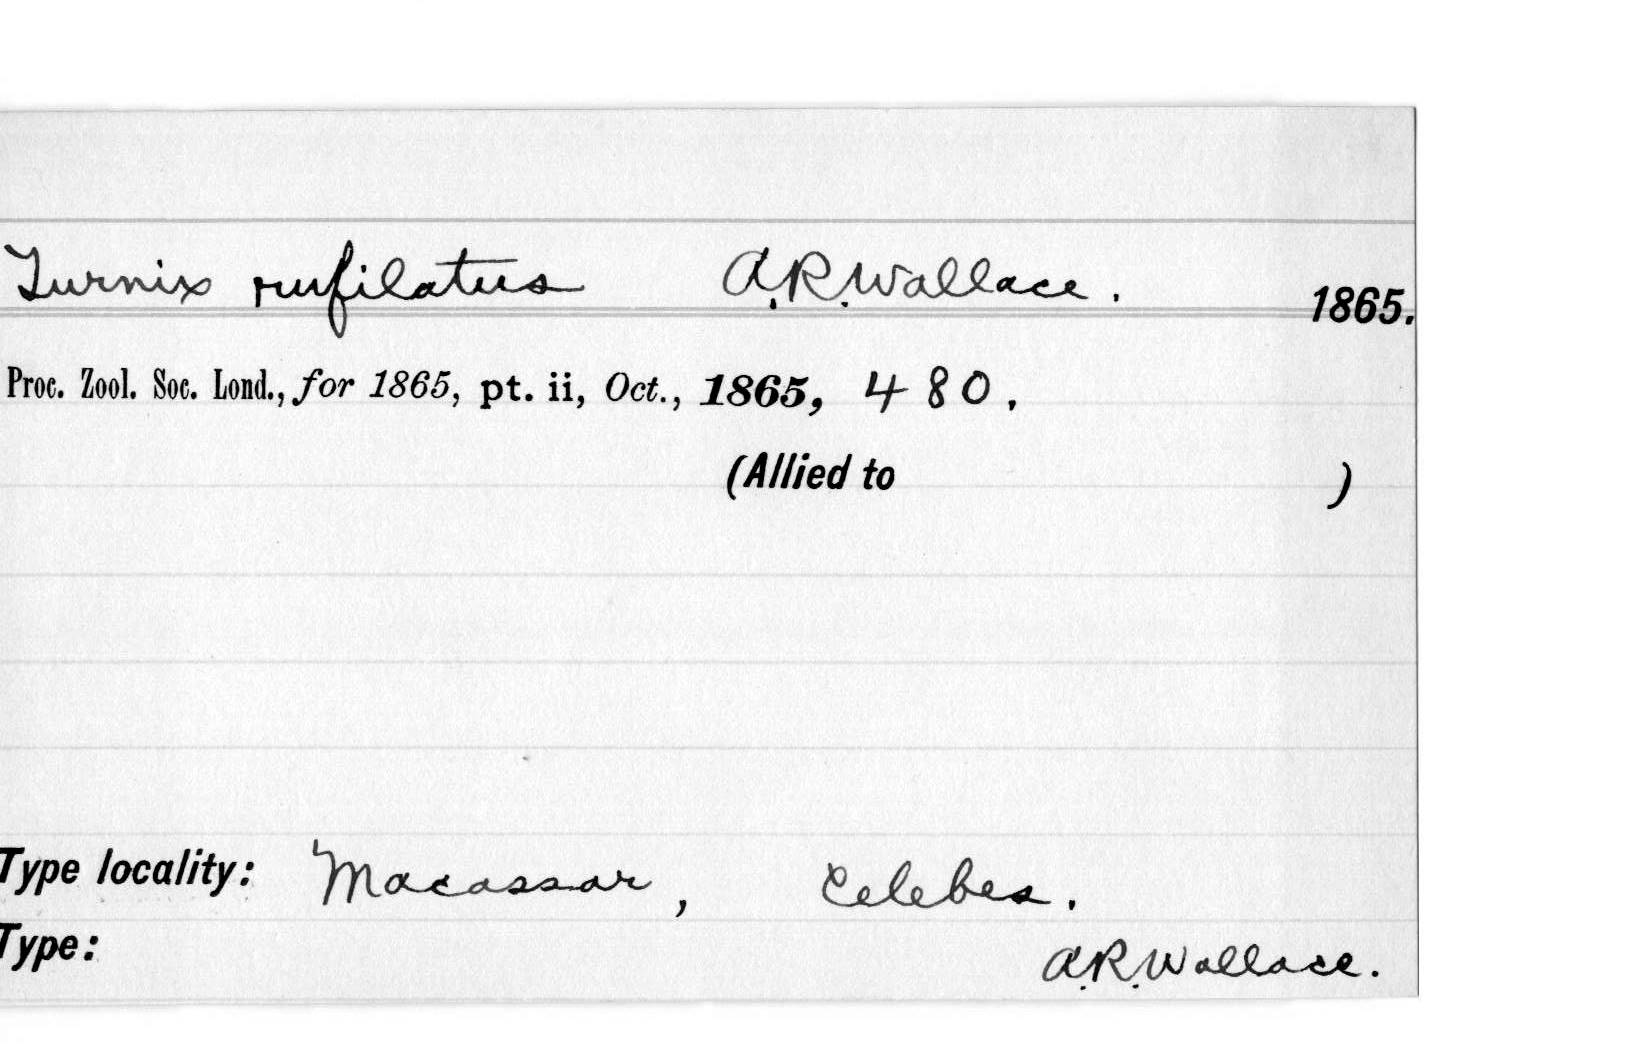 Turnix rufilatus A.R.Wallace. 1865.
Proc. Zool. Soc. Lond., for 1865, pt. ii, Oct., 1865, 480.
(Allied to )
Type locality: Macassar, Celebes.
Type: A.R.Wallace.